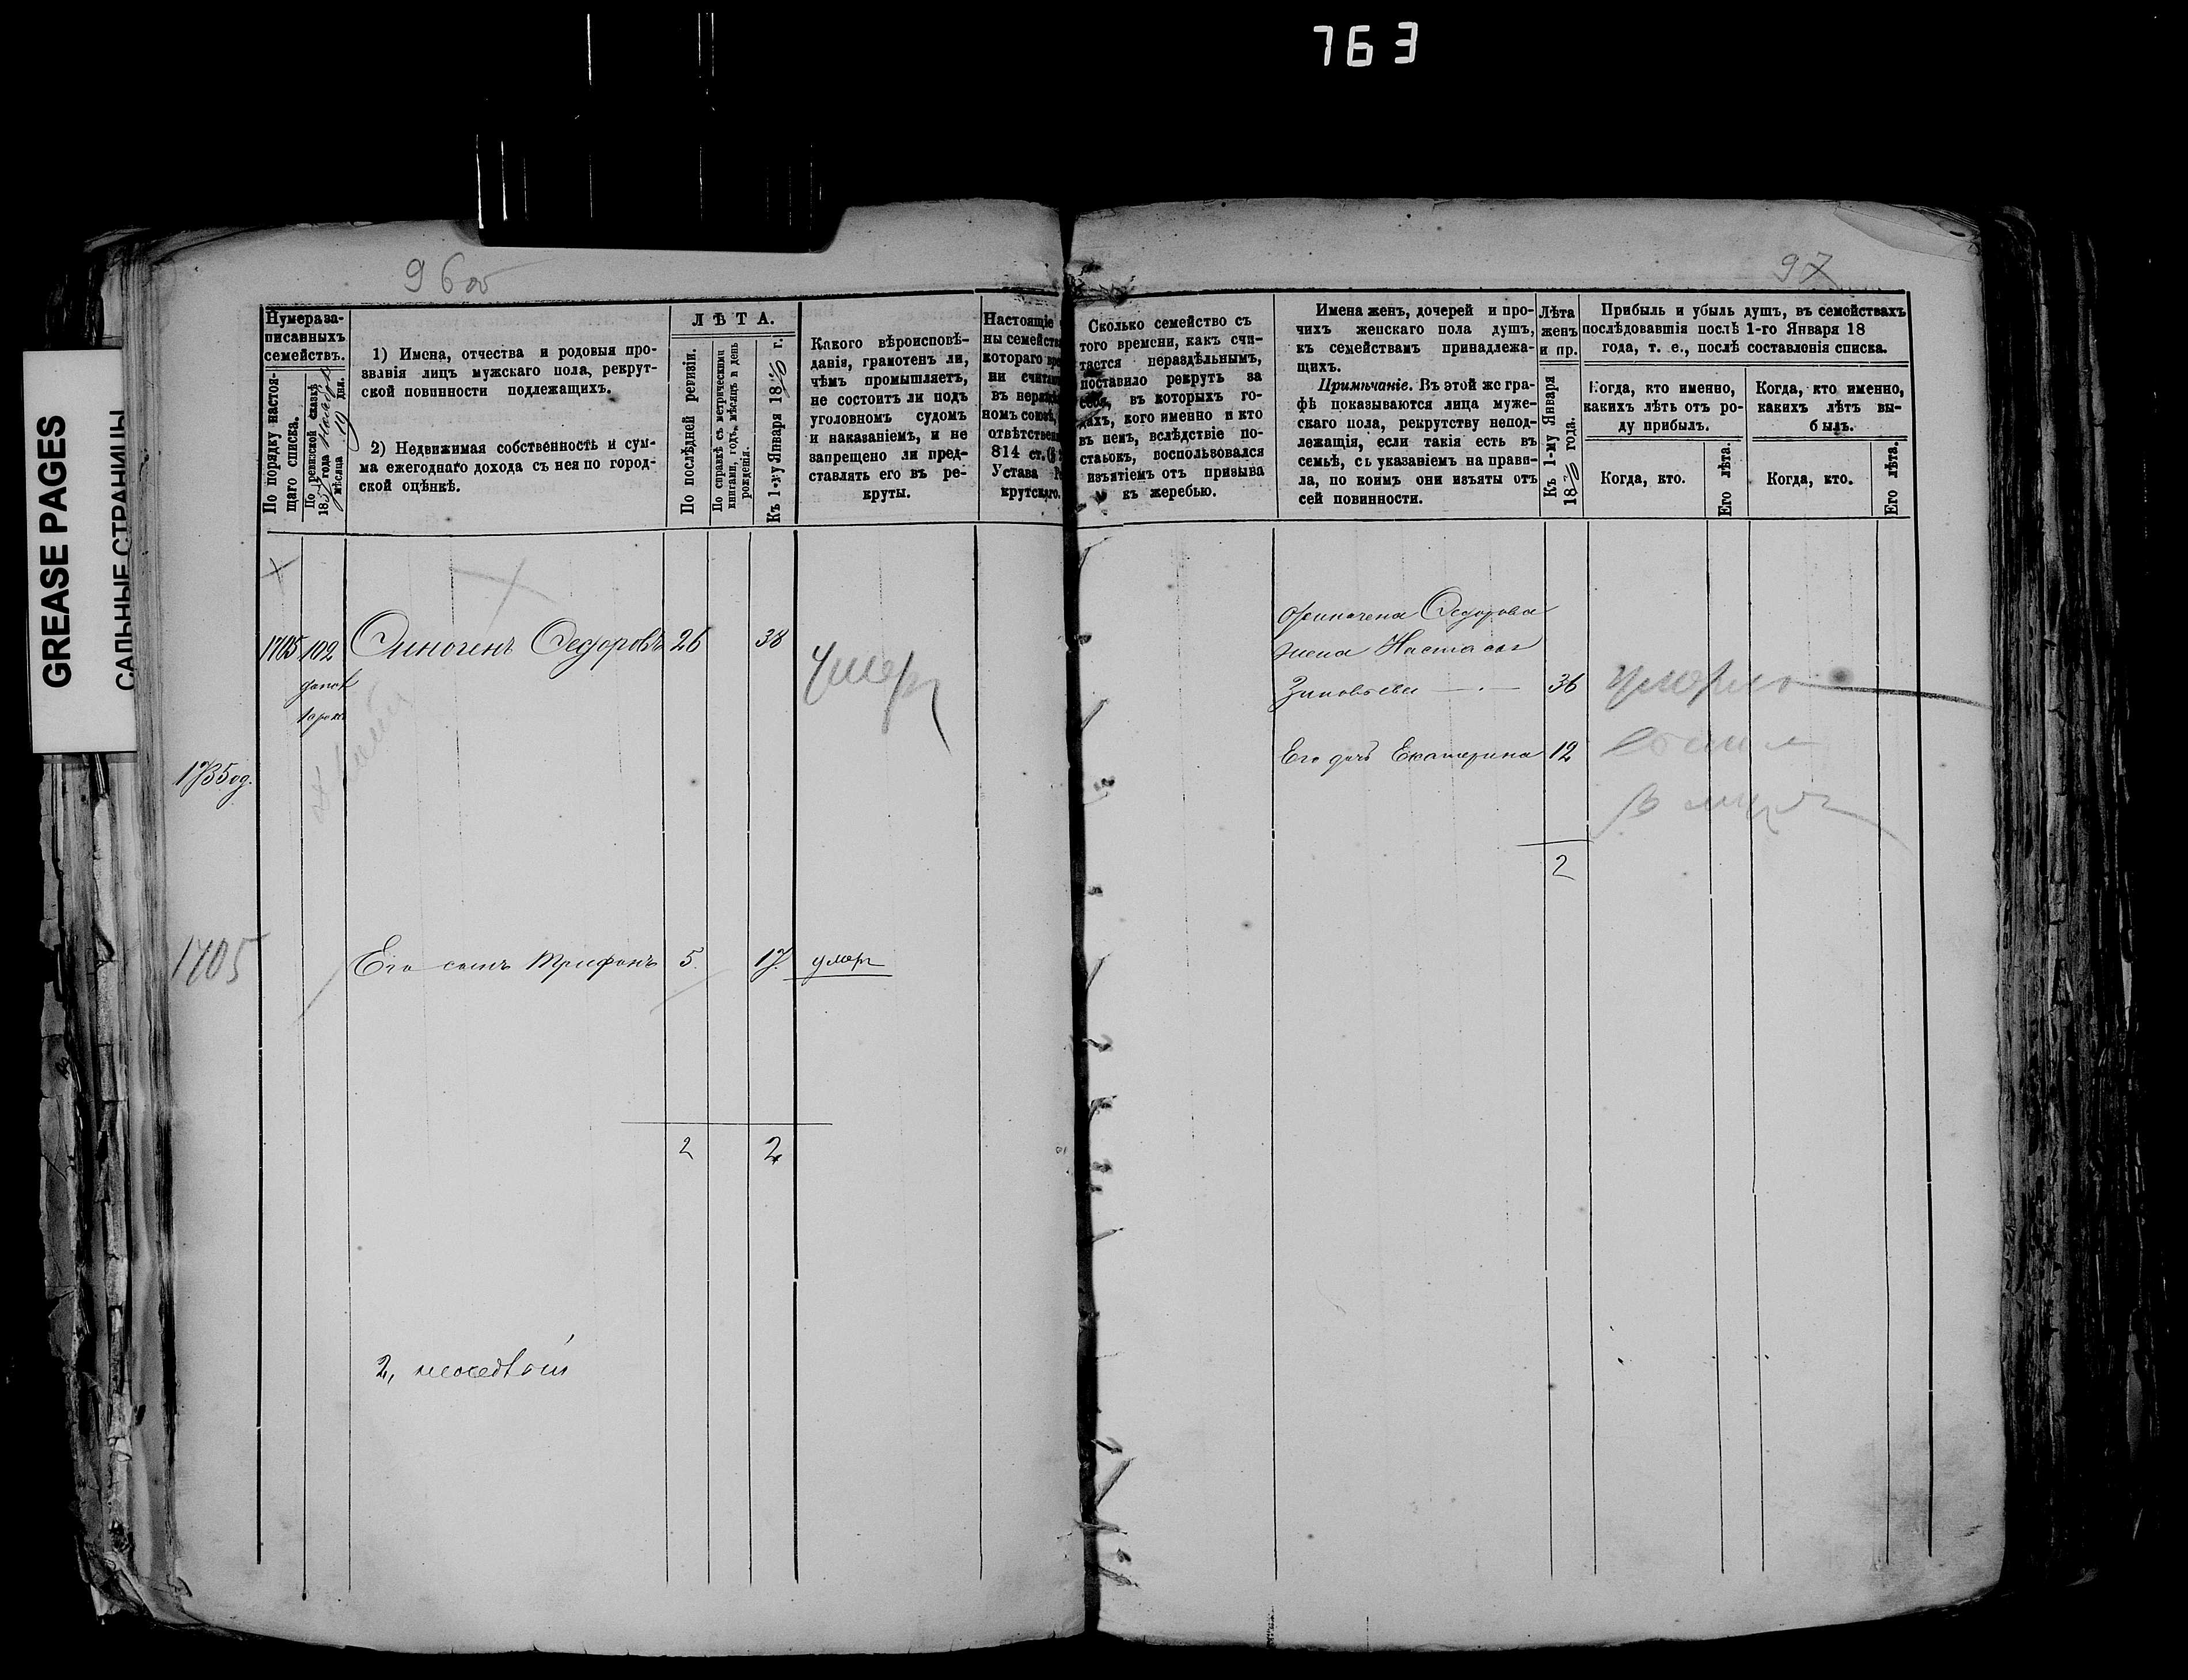 763
GREASE PAGES
САЛЬНЫЕ СТРАНИЦЫ
96об
97
Нумера за-
писанныхъ
семействъ.
По порядку настоя-
щаго списка.
По ревизской сказкѣ
185 года
мѣсяца 19 дня.
1) Имена, отчества и родовыя про-
званія лицъ мужскаго пола, рекрут-
ской повинности подлежащихъ.
2) Недвижимая собственность и сум-
ма ежегоднаго дохода съ нея по город-
ской оцѣнкѣ.
ЛѢТА.
По послѣдней ревизіи.
По справкѣ съ метрическими
книгами, годъ, мѣсяцъ и день
рожденія.
Къ 1-му Января 1870 г.
Какого вѣроисповѣ-
данія, грамотенъ ли,
чѣмъ промышляетъ,
не состоитъ ли подъ
уголовномъ судомъ
и наказаніемъ, и не
запрещено ли пред-
ставлять его въ ре-
круты.
Настоящіе
ны семейств
котораго вре
ни счита
въ нераз
номъ союзѣ,
отвѣтствен
814 ст.
Устава Р
крутскаго.
Сколько семейство съ
того времени, какъ счи-
тается нераздѣльнымъ,
поставило рекрутъ за
себя, въ которыхъ го-
дахъ, кого именно и кто
въ немъ, вслѣдствіе по-
ставокъ, воспользовался
изъятіемъ отъ призыва
къ жеребью.
Имена женъ, дочерей и про-
чихъ женскаго пола душъ,
къ семействамъ принадлежа-
щихъ.
Примѣчаніе. Въ этой же гра-
фѣ показываются лица муже-
скаго пола, рекрутству непод-
лежащія, если такія есть въ
семьѣ, съ указаніемъ на прави-
ла, по коимъ они изъяты отъ
сей повинности.
Лѣта
женъ
и пр.
Къ 1-му Января
1870 года.
Прибыль и убыль душъ, въ семействахъ
послѣдовавшія послѣ 1-го Января 18
года, т. е., послѣ составленія списка.
Когда, кто именно,
какихъ лѣтъ отъ ро-
ду прибылъ.
Когда, кто.
Его лѣта.
Когда, кто именно,
какихъ лѣтъ вы-
былъ.
Когда, кто.
Его лѣта.
1705 102 Финогенъ Федоровъ 26 38 умеръ
Финогена Федорова
жена Настасья
Зиновьева 36 умерла
1735 од.
Его дочь Екатерина 12
2
1705
Его сынъ Трифонъ 5. 17. умеръ
2 2
2,